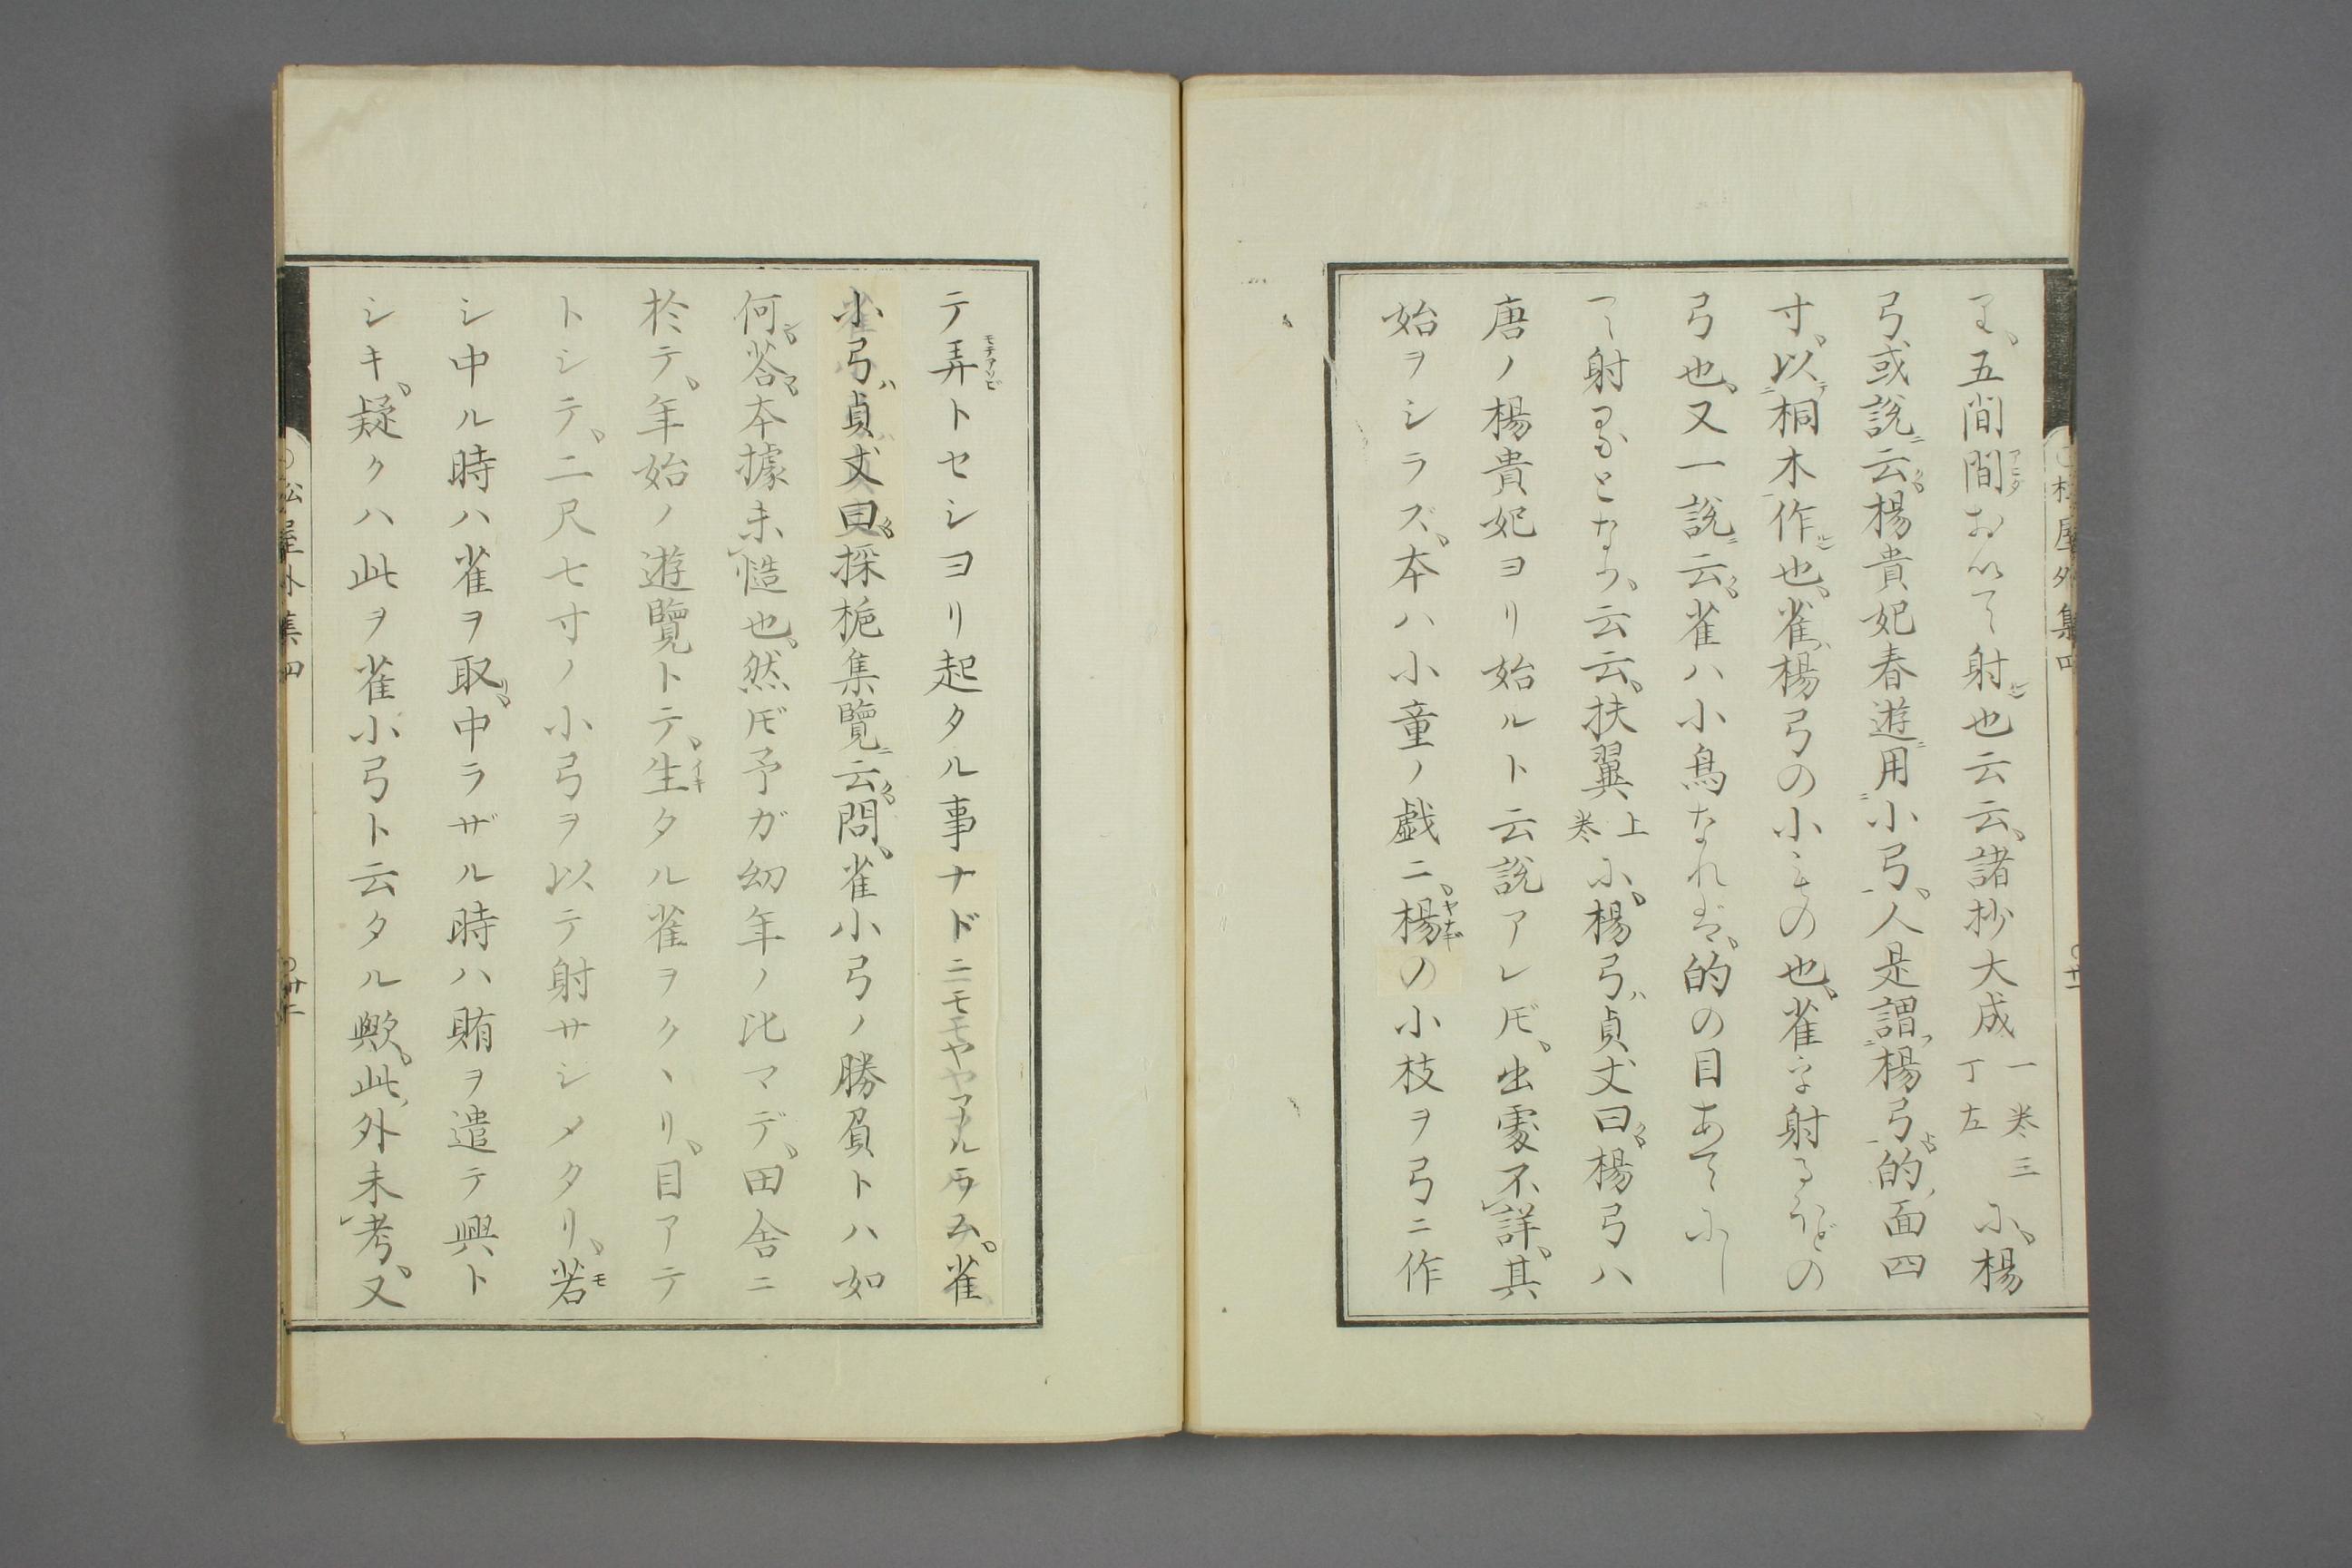 り、五間間おいて射也云云、諸抄大成一巻三丁左に、楊
弓、或説云楊貴妃春遊用小弓、人是謂楊弓的面四
寸、以桐木作也、雀楊弓の小きもの也、雀を射るほどの
弓也、又一説云、雀ハ小鳥なれば、的の目あてにし
て射ることなり、云云、扶翼上巻に、楊弓ハ貞丈曰楊弓ハ
唐ノ楊貴妃ヨリ始ルト云説アレドモ、出處不詳、其
始ヲシラズ、本ハ小童ノ戯ニ、楊ノ小枝ヲ弓ニ作
テ弄トセシヨリ起タル事ナドニモヤアルラム。雀
小弓ハ貞丈曰採梔集覽云問、雀小弓ノ勝負トハ如
何答本據未慥也、然ドモ予ガ幼年ノ比マデ、田舎ニ
於テ、年始ノ遊覽トテ、生タル雀ヲクヽリ、目アテ
トシテ、二尺七寸ノ小弓ヲ以テ射サシメタリ、若
シ中ル時ハ雀ヲ取、中ラザル時ハ賄ヲ遣テ興ト
シキ、疑クハ此ヲ雀小弓ト云タル歟。此外未考、又
松屋外集四